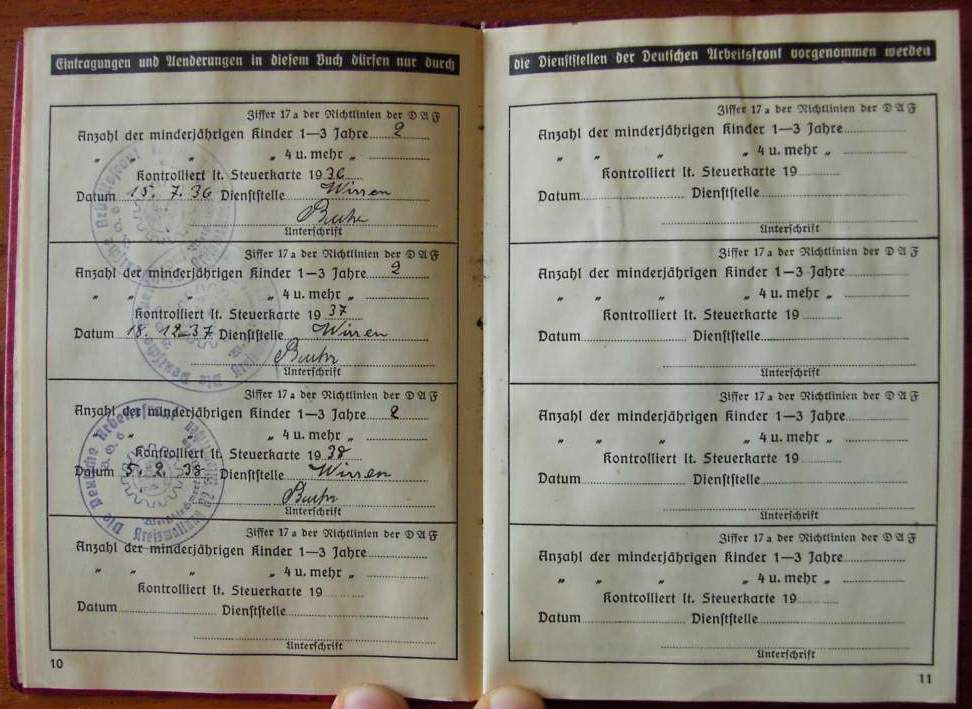 Eintragungen und Aenderungen in diesem Buch dürfen nur durch
Ziffer 17a der Richtlinien der DAF
Anzahl der minderjährigen Kinder 1—3 Jahre 2
„ „ „ „ 4 u. mehr „
Kontrolliert lt. Steuerkarte 1936
Datum 15. 7. 36 Dienststelle Wissen
Unterschrift
Ziffer 17a der Richtlinien der DAF
Anzahl der minderjährigen Kinder 1—3 Jahre 2
„ „ „ „ 4 u. mehr „
Kontrolliert lt. Steuerkarte 1937
Datum 18. 12-37 Dienststelle Wissen
Unterschrift
Ziffer 17a der Richtlinien der DAF
Anzahl der minderjährigen Kinder 1—3 Jahre 2
„ „ „ 4 u. mehr „
Kontrolliert lt. Steuerkarte 1938
Datum 5. 2. 38 Dienststelle Wissen
Unterschrift
Die Deutsche Arbeitsfront
Ziffer 17a der Richtlinien der DAF
Anzahl der minderjährigen Kinder 1—3 Jahre
„ „ „ „ 4 u. mehr „
Kontrolliert lt. Steuerkarte 19
Datum Dienststelle
Unterschrift
10
die Dienststellen der Deutschen Arbeitsfront vorgenommen werden
Ziffer 17a der Richtlinien der DAF
Anzahl der minderjährigen Kinder 1—3 Jahre
„ „ „ „ 4 u. mehr „
Kontrolliert lt. Steuerkarte 19
Datum Dienststelle
Unterschrift
Ziffer 17a der Richtlinien der DAF
Anzahl der minderjährigen Kinder 1—3 Jahre
„ „ „ „ 4 u. mehr „
Kontrolliert lt. Steuerkarte 19
Datum Dienststelle
Unterschrift
Ziffer 17a der Richtlinien der DAF
Anzahl der minderjährigen Kinder 1—3 Jahre
„ „ „ „ 4 u. mehr „
Kontrolliert lt. Steuerkarte 19
Datum Dienststelle
Unterschrift
Ziffer 17a der Richtlinien der DAF
Anzahl der minderjährigen Kinder 1—3 Jahre
„ „ „ „ 4 u. mehr „
Kontrolliert lt. Steuerkarte 19
Datum Dienststelle
Unterschrift
11